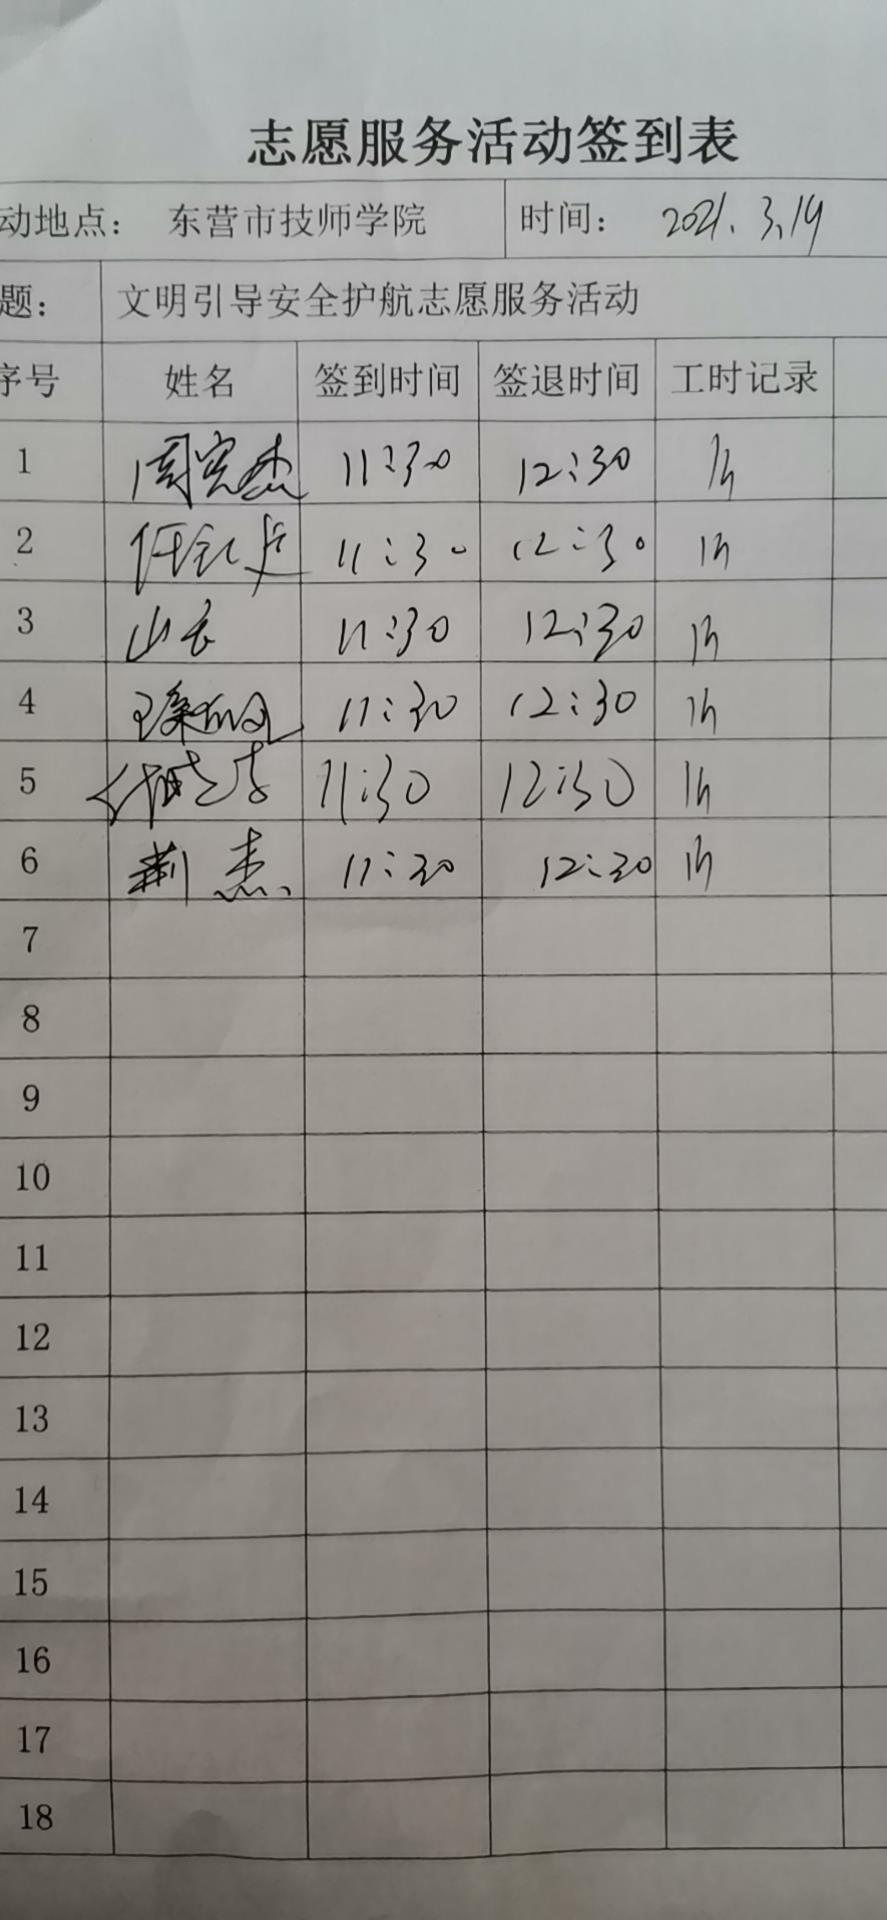 志愿服务活动签到表
动地点： 东营市技师学院 时间： 2021.3.19
题： 文明引导安全护航志愿服务活动
序号 姓名 签到时间 签退时间 工时记录
1 周宪杰 11:30 12:30 1h
2 11:30 12:30 1h
3 11:30 12:30 1h
4 11:30 12:30 1h
5 11:30 12:30 1h
6 荆杰 11:30 12:30 1h
7
8
9
10
11
12
13
14
15
16
17
18